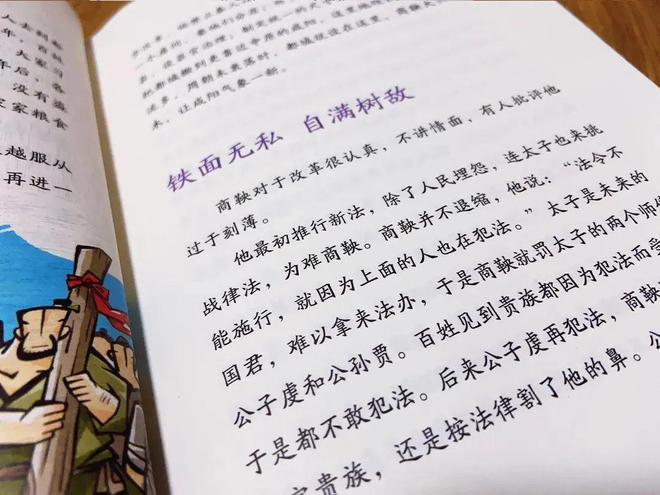 人去到都
年，百姓
大家习
年后，各
没有盗
家家粮食
越服从
再进一
都城搬到更靠近中原的咸阳，这里地理
多，用朝来莫落时，都城就设在这里，商鞅
来，让咸阳气象一新。
铁面无私 自满树敌
商鞅对于改革很认真，不讲情面，有人批评他
过于刻薄。
他最初推行新法，除了人民埋怨，连太子也来挑
战律法，为难商鞅。商鞅并不退缩，他说：“法令不
能施行，就因为上面的人也在犯法。”太子是未来的
国君，难以拿来法办，于是商鞅就罚太子的两个师傅
公子虔和公孙贾。百姓见到贵族都因为犯法而受
于是都不敢犯法。后来公子虔再犯法，商鞅
贵族，还是按法律割了他的鼻。公